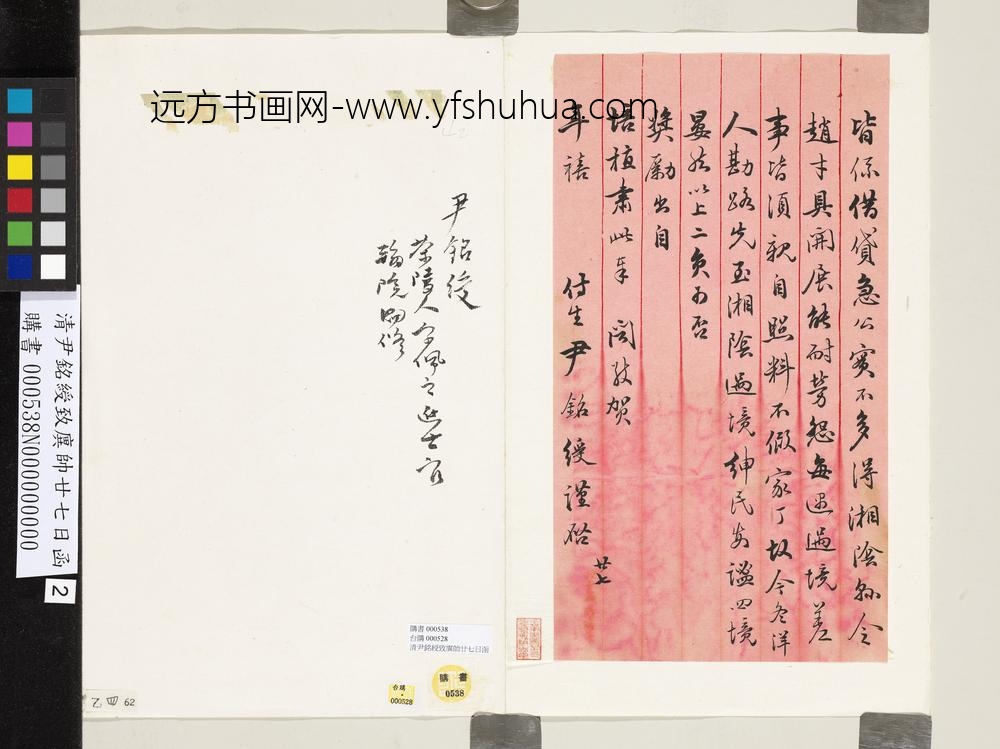 远方书画网-www.yfshuhua.com
皆係借貸急公實不多得湘陰孫令
趙才具開展能耐勞怨每遇過境差
事皆須親自照料不假家丁故今冬洋
人勘路先至湘陰過境紳民安謐四境
晏然以上二員可否
獎勵出自
培植肅此奉 閱敬賀
年禧
侍生尹銘綬謹啟
廿七
尹銘綬
茶陵人字佩之進士官
翰院編修
清尹銘綬致廙帥廿七日函
購書 000538N000000000
2
購書 000538
台購 000528
清尹銘綬致廙帥廿七日函
購書
0538
台購
000528
乙 四 62